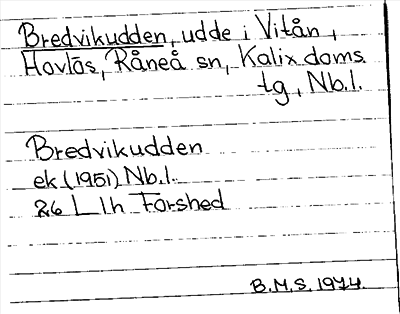 Bredvikudden, udde i Vitån,
Hovlös, Råneå sn, Kalix doms.
tg, Nb.l.
Bredvikudden
ek (1951) Nb.l.
26 L 1h Forshed
B.M.S. 1974.